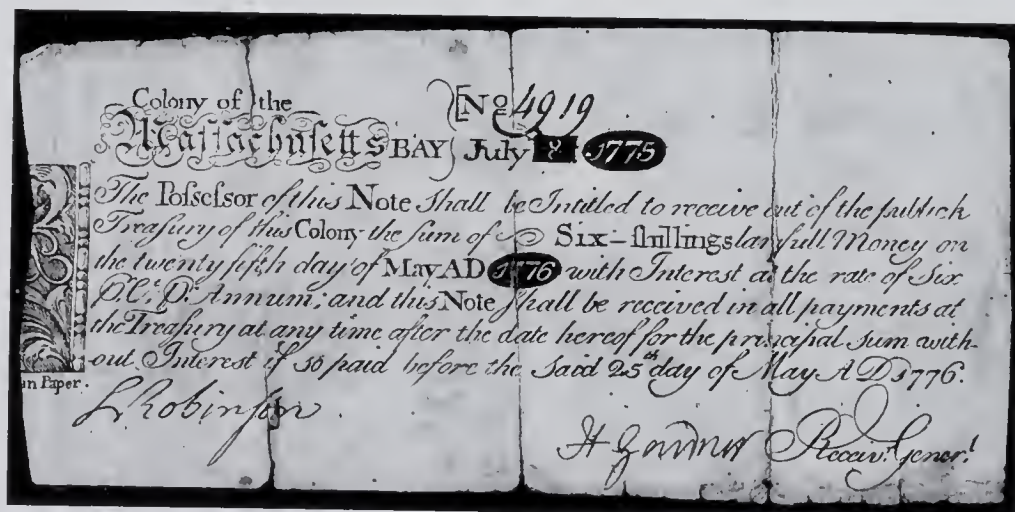 Colony of the [No 4919
Massachusetts BAY July 8 1775
The Possessor of this Note shall be Intitled to receive out of the publick
Treasury of this Colony the sum of Six-shillings lawfull Money on
the twenty fifth day of May AD 1776 with Interest at the rate of Six
P. Ct. P. Annum; and this Note shall be received in all payments at
the Treasury at any time after the date hereof for the principal sum with-
out Interest if so paid before the said 25th day of May A D 1776.
in Paper.
L Robinson
H Gardner Receivr. Generl.